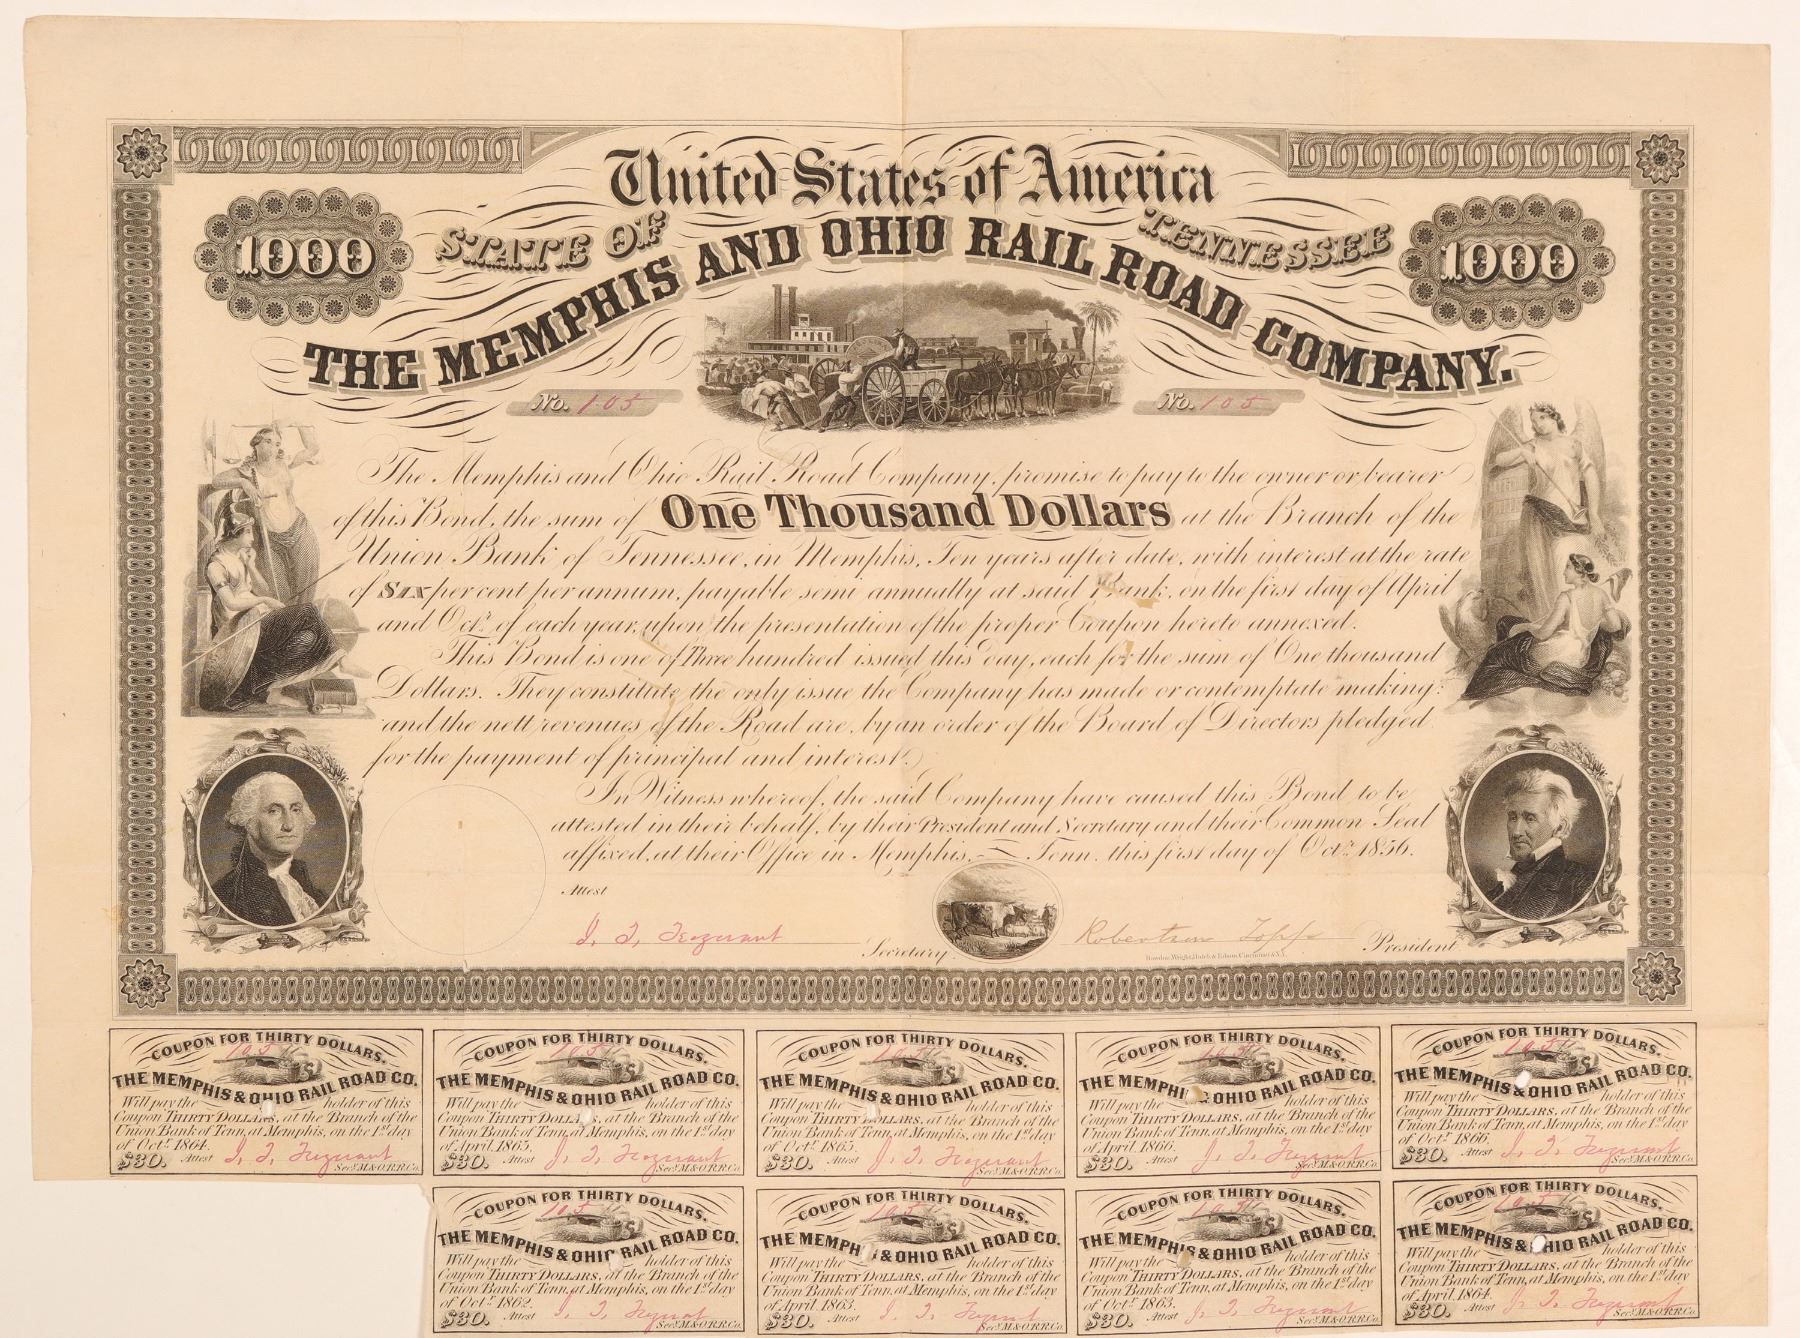 United States of America
STATE OF TENNESSEE
1000
1000
THE MEMPHIS AND OHIO RAIL ROAD COMPANY.
No. 105
No. 105
The Memphis and Ohio Rail Road Company, promise to pay to the owner or bearer
of this Bond, the sum of One Thousand Dollars at the Branch of the
Union Bank of Tennessee, in Memphis, Ten years after date, with interest at the rate
of SIX per cent per annum, payable semi annually at said Bank, on the first day of April
and Octr. of each year, upon the presentation of the proper Coupon hereto annexed.
This Bond is one of Three hundred issued this day, each for the sum of One thousand
Dollars. They constitute the only issue the Company has made or contemplate making:
and the nett revenues of the Road are, by an order of the Board of Directors pledged
for the payment of principal and interest.
In Witness whereof, the said Company have caused this Bond to be
attested in their behalf, by their President and Secretary and their Common Seal
affixed, at their Office in Memphis, Tenn. this first day of Octr. 1856.
Attest
Secretary
Robertson Topp
President
COUPON FOR THIRTY DOLLARS.
105
THE MEMPHIS & OHIO RAIL ROAD CO.
Will pay the holder of this
Coupon THIRTY DOLLARS, at the Branch of the
Union Bank of Tenn, at Memphis, on the 1st day
of Octr. 1864.
$30. Attest
Secy. M. & O. R. R. Co.
COUPON FOR THIRTY DOLLARS.
105
THE MEMPHIS & OHIO RAIL ROAD CO.
Will pay the holder of this
Coupon THIRTY DOLLARS, at the Branch of the
Union Bank of Tenn, at Memphis, on the 1st day
of April 1865.
$30. Attest
Secy. M. & O. R. R. Co.
COUPON FOR THIRTY DOLLARS.
105
THE MEMPHIS & OHIO RAIL ROAD CO.
Will pay the holder of this
Coupon THIRTY DOLLARS, at the Branch of the
Union Bank of Tenn, at Memphis, on the 1st day
of Octr. 1865.
$30. Attest
Secy. M. & O. R. R. Co.
COUPON FOR THIRTY DOLLARS.
105
THE MEMPHIS & OHIO RAIL ROAD CO.
Will pay the holder of this
Coupon THIRTY DOLLARS, at the Branch of the
Union Bank of Tenn, at Memphis, on the 1st day
of April 1866.
$30. Attest
Secy. M. & O. R. R. Co.
COUPON FOR THIRTY DOLLARS.
105
THE MEMPHIS & OHIO RAIL ROAD CO.
Will pay the holder of this
Coupon THIRTY DOLLARS, at the Branch of the
Union Bank of Tenn, at Memphis, on the 1st day
of Octr. 1866.
$30. Attest
Secy. M. & O. R. R. Co.
COUPON FOR THIRTY DOLLARS.
105
THE MEMPHIS & OHIO RAIL ROAD CO.
Will pay the holder of this
Coupon THIRTY DOLLARS, at the Branch of the
Union Bank of Tenn, at Memphis, on the 1st day
of Octr. 1862.
$30. Attest
Secy. M. & O. R. R. Co.
COUPON FOR THIRTY DOLLARS.
105
THE MEMPHIS & OHIO RAIL ROAD CO.
Will pay the holder of this
Coupon THIRTY DOLLARS, at the Branch of the
Union Bank of Tenn, at Memphis, on the 1st day
of April 1863.
$30. Attest
Secy. M. & O. R. R. Co.
COUPON FOR THIRTY DOLLARS.
105
THE MEMPHIS & OHIO RAIL ROAD CO.
Will pay the holder of this
Coupon THIRTY DOLLARS, at the Branch of the
Union Bank of Tenn, at Memphis, on the 1st day
of Octr. 1863.
$30. Attest
Secy. M. & O. R. R. Co.
COUPON FOR THIRTY DOLLARS.
105
THE MEMPHIS & OHIO RAIL ROAD CO.
Will pay the holder of this
Coupon THIRTY DOLLARS, at the Branch of the
Union Bank of Tenn, at Memphis, on the 1st day
of April 1864.
$30. Attest
Secy. M. & O. R. R. Co.